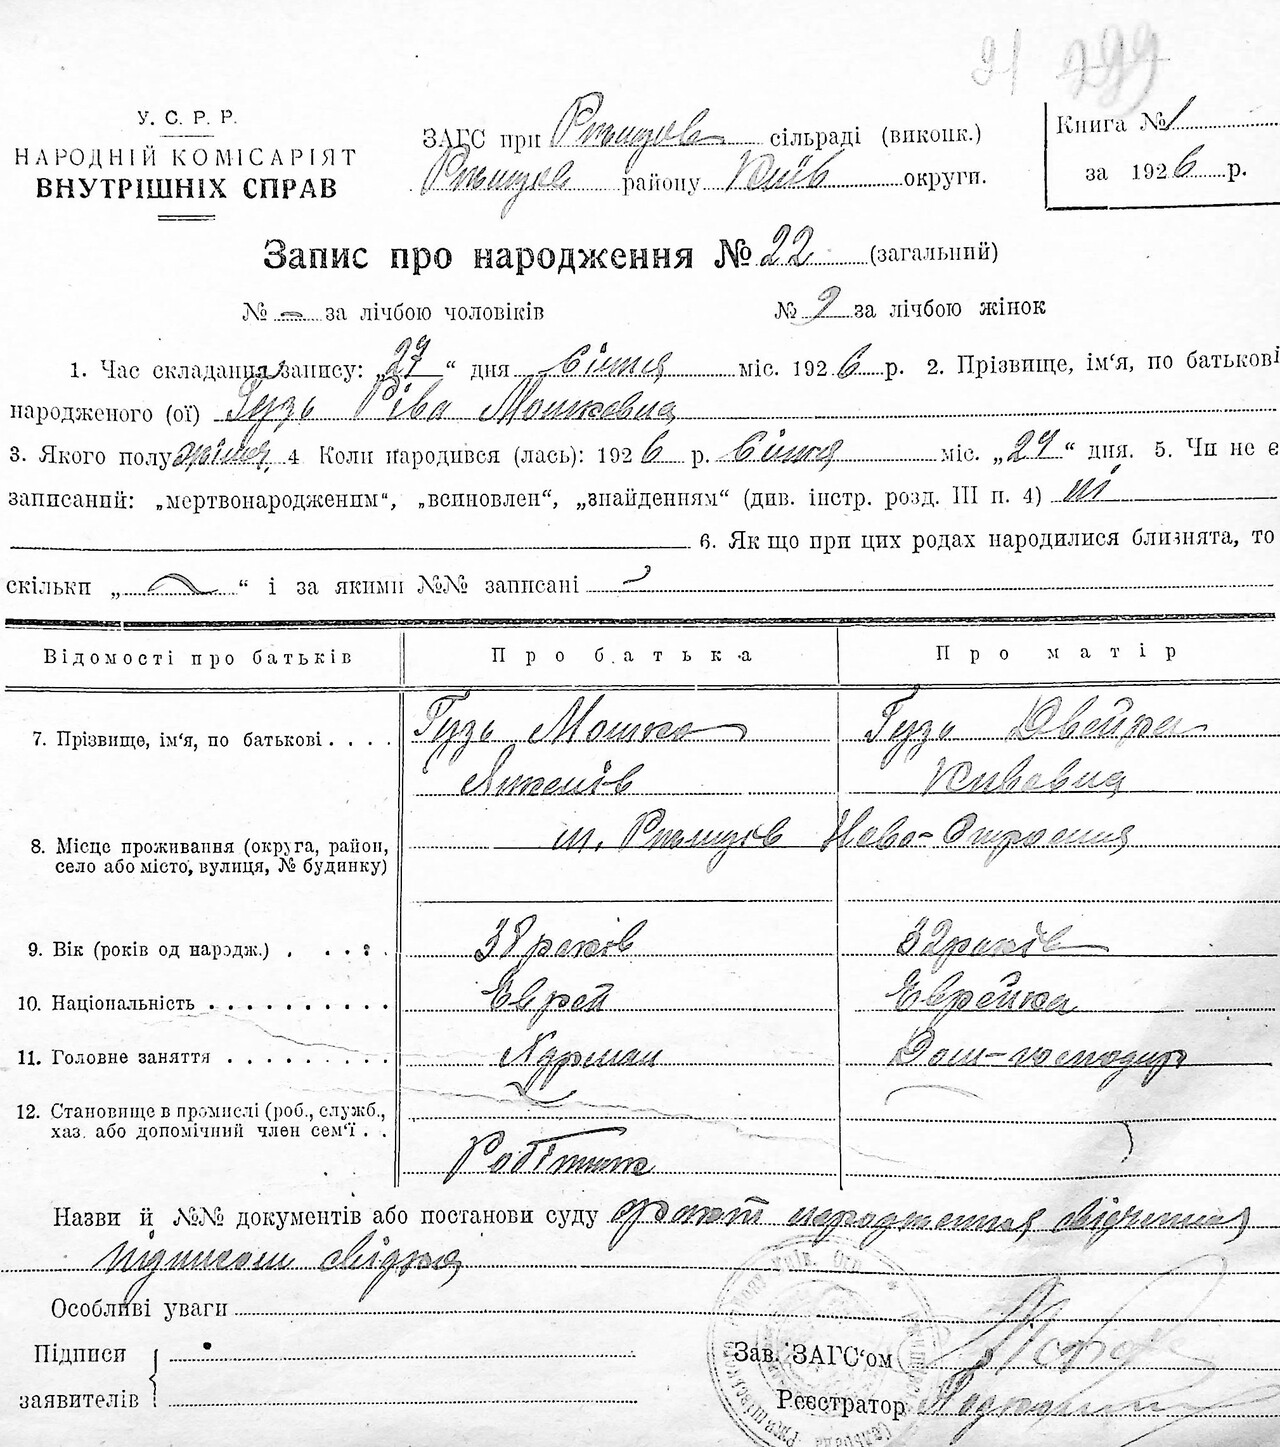 91 299
У. С. Р. Р.
НАРОДНІЙ КОМІСАРІЯТ
ВНУТРІШНІХ СПРАВ
ЗАГС при Ржищев сільраді (виконк.)
Ржищев району Київ округи.
Книга № 1
за 1926 р.
Запис про народження № 22 (загальний)
№ — за лічбою чоловіків № 9 за лічбою жінок
1. Час складання запису: „27“ дня Січня міс. 1926 р. 2. Прізвище, ім‘я, по батькові
народженого (ої) Гузь Ріва Мошковна
3. Якого полу жіноч 4 Коли народився (лась): 1926 р. Січня міс. „27“ дня. 5. Чи не є
записаний: „мертвонародженим“, „всиновлен“, „знайденням“ (див. інстр. розд. III п. 4) ні
6. Як що при цих родах народилися близнята, то
скільки „ — “ і за якими №№ записані —
Відомості про батьків Про батька Про матір
7. Прізвище, ім‘я, по батькові . . . . Гузь Мошко Гузь Двейра
Кивовна
8. Місце проживання (округа, район,
село або місто, вулиця, № будинку)
м. Ржищів Ново-Строения
9. Вік (років од народж.) . . . . . 38 років 32 років
10. Національність . . . . . . . . . . Єврей Єврейка
11. Головне заняття . . . . . . . . . Дом-господар
12. Становище в промислі (роб., служб.,
хаз. або допомічний член сем‘ї . .
Робітник
Назви й №№ документів або постанови суду народження свідчення
підписом свідка
Особливі уваги
Підписи
заявителів
Зав. ЗАГС‘ом
Реєстратор